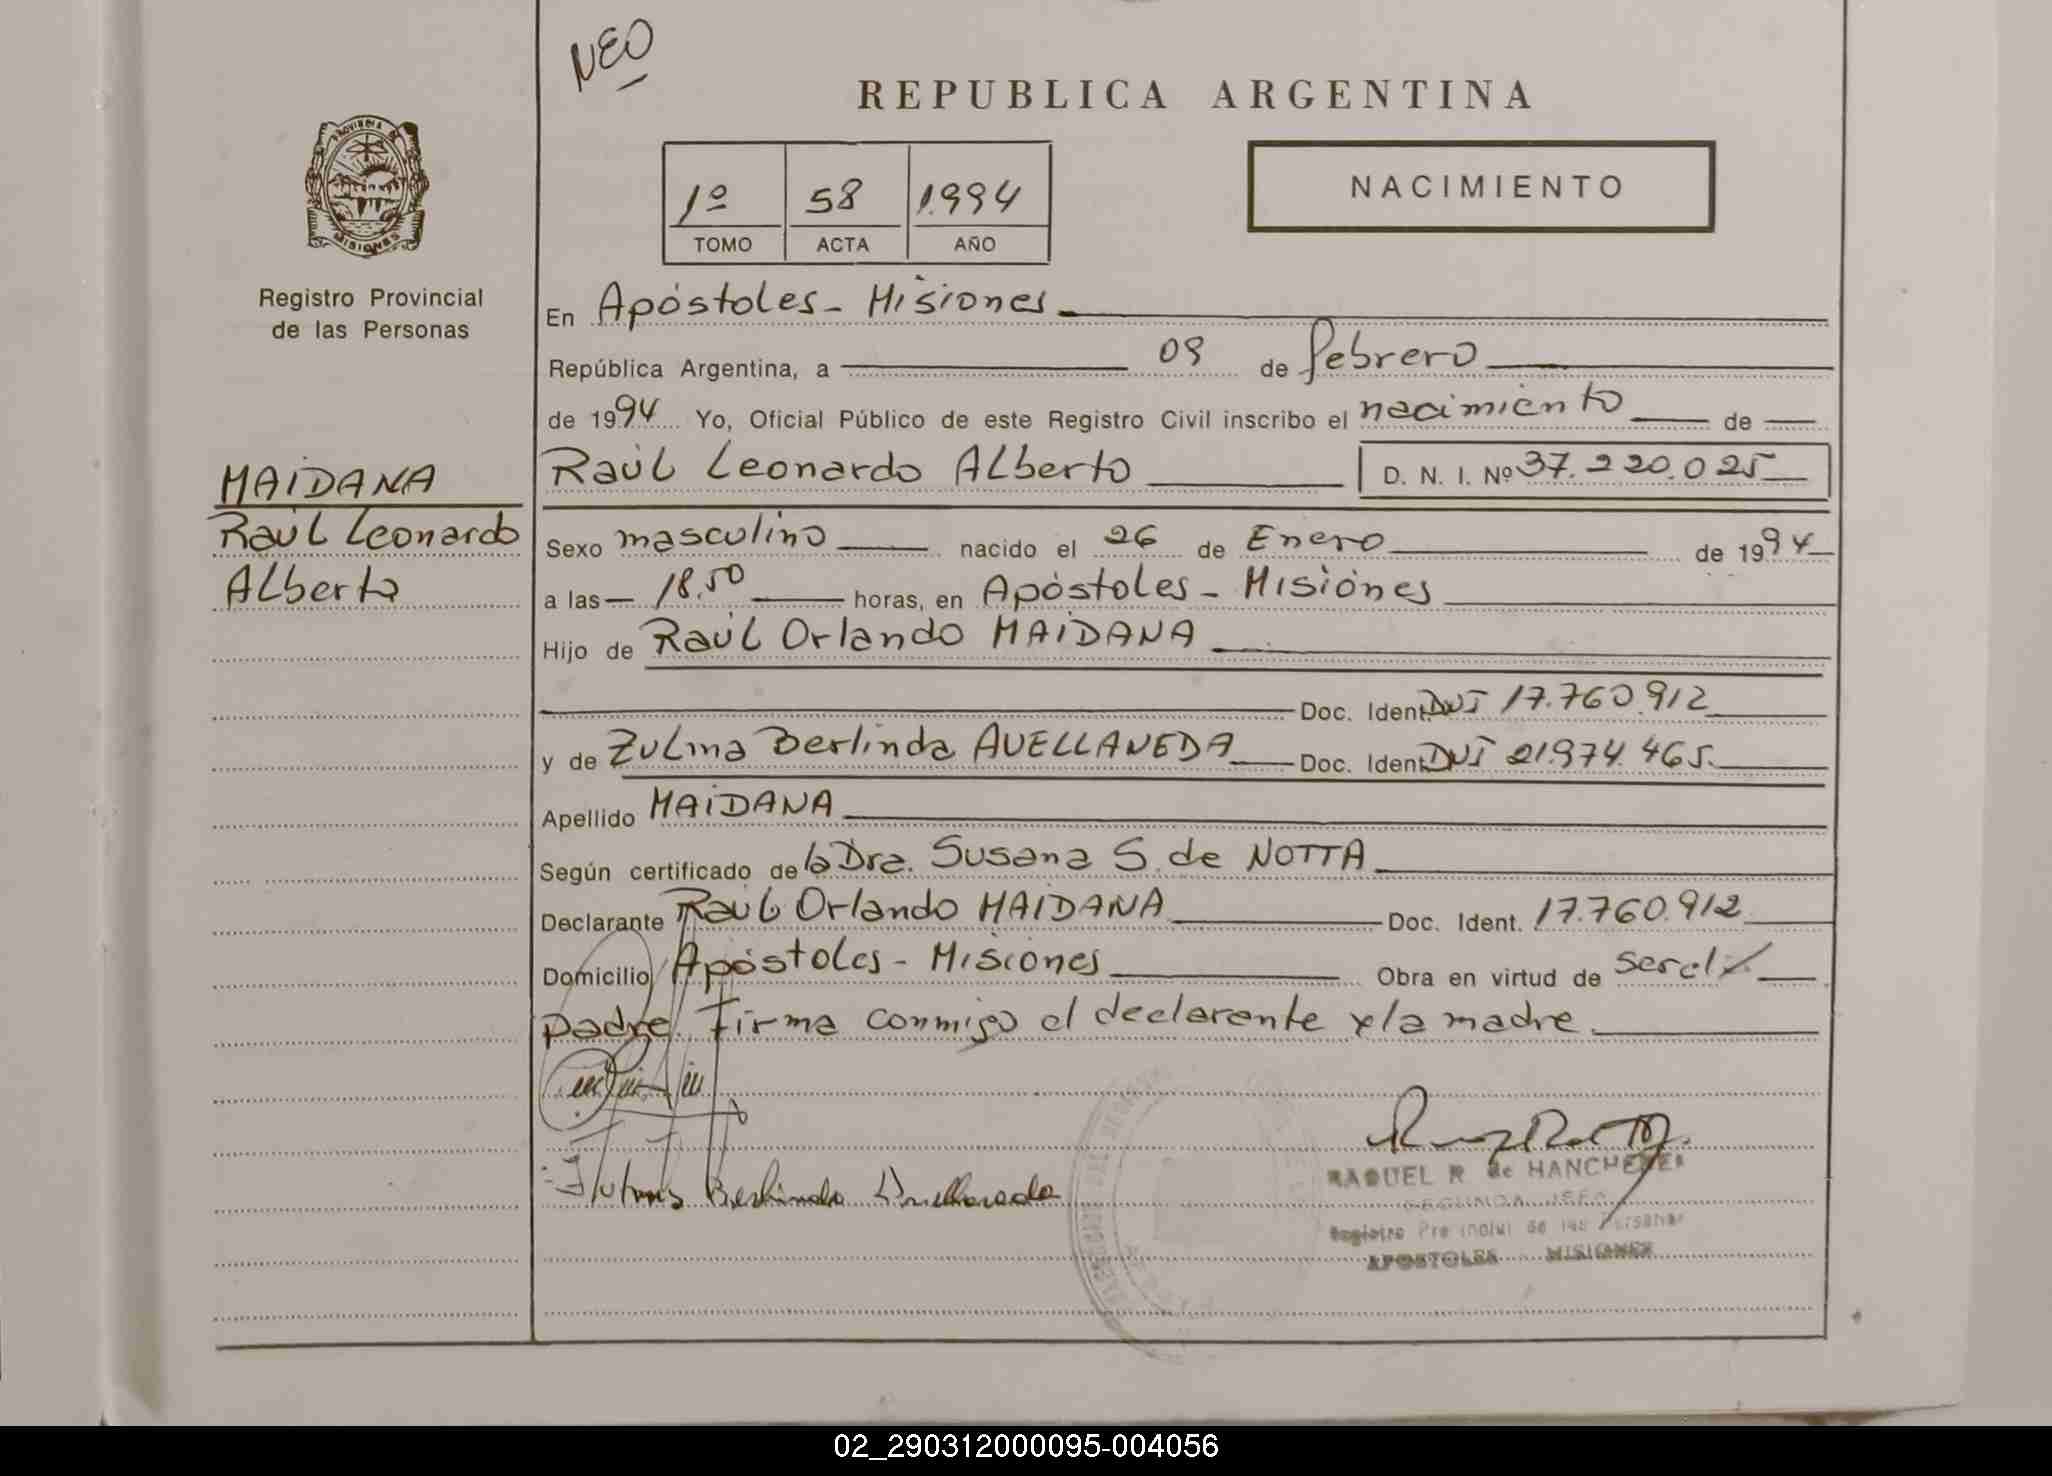 NEO
REPUBLICA ARGENTINA
PROVINCIA DE
MISIONES
Registro Provincial
de las Personas
1º 58 1.994
TOMO ACTA AÑO
NACIMIENTO
En Apóstoles - Misiones
República Argentina, a 09 de febrero
de 1994 Yo, Oficial Público de este Registro Civil inscribo el nacimiento de
Raúl Leonardo Alberto D. N. I. Nº 37.220.025
MAIDANA
Raúl Leonardo
Alberto
Sexo masculino nacido el 26 de Enero de 1994
a las 18.50 horas, en Apóstoles - Misiones
Hijo de Raúl Orlando MAIDANA
Doc. Ident. DNI 17.760.912
y de Zulma Berlinda AVELLANEDA Doc. Ident. DNI 21.974.465.
Apellido MAIDANA
Según certificado de la Dra. Susana S. de NOTTA
Declarante Raúl Orlando MAIDANA Doc. Ident. 17.760.912
Domicilio Apóstoles - Misiones Obra en virtud de ser el
padre. Firma conmigo el declarante y la madre.
Berlinda Avellaneda
RAQUEL R. de
SEGUNDA JEFA
Registro Provincial de las Personas
APOSTOLES MISIONES
02_290312000095-004056